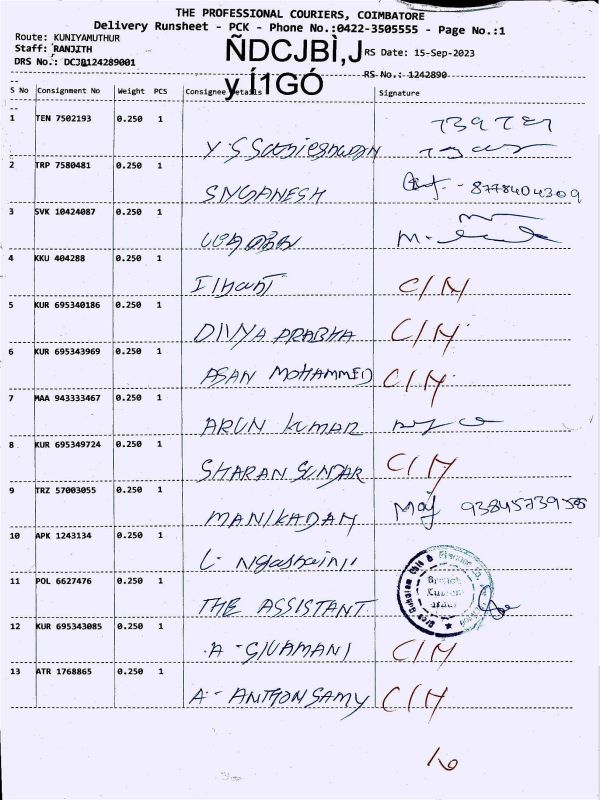 THE PROFESSIONAL COURIERS, COIMBATORE
Delivery Runsheet - PCK - Phone No.:0422-3505555 - Page No.:1
Route: KUNIYAMUTHUR
Staff: RANJITH
ÑDCJBÌ,J
RS Date: 15-Sep-2023
DRS No.: DCJB124289001
y Í1GÓ
RS No.: 1242890
S No Consignment No Weight PCS Consignee Details Signature
1 TEN 7502193 0.250 1
2 TRP 7580481 0.250 1
SIVGANESH 8778404309
3 SVK 10424087 0.250 1
4 KKU 404288 0.250 1
C/M
5 KUR 695340186 0.250 1
DIVYA PRABHA C/M
6 KUR 695343969 0.250 1
ASAN MOHAMMED C/M
7 MAA 943333467 0.250 1
ARUN KUMAR
8 KUR 695349724 0.250 1
SHARAN SUNDAR C/M
9 TRZ 57003055 0.250 1
MANIKADAN
10 APK 1243134 0.250 1
11 POL 6627476 0.250 1
THE ASSISTANT
12 KUR 695343085 0.250 1
A - SIVAMANI C/M
13 ATR 1768865 0.250 1
A - ANTHONSAMY C/M